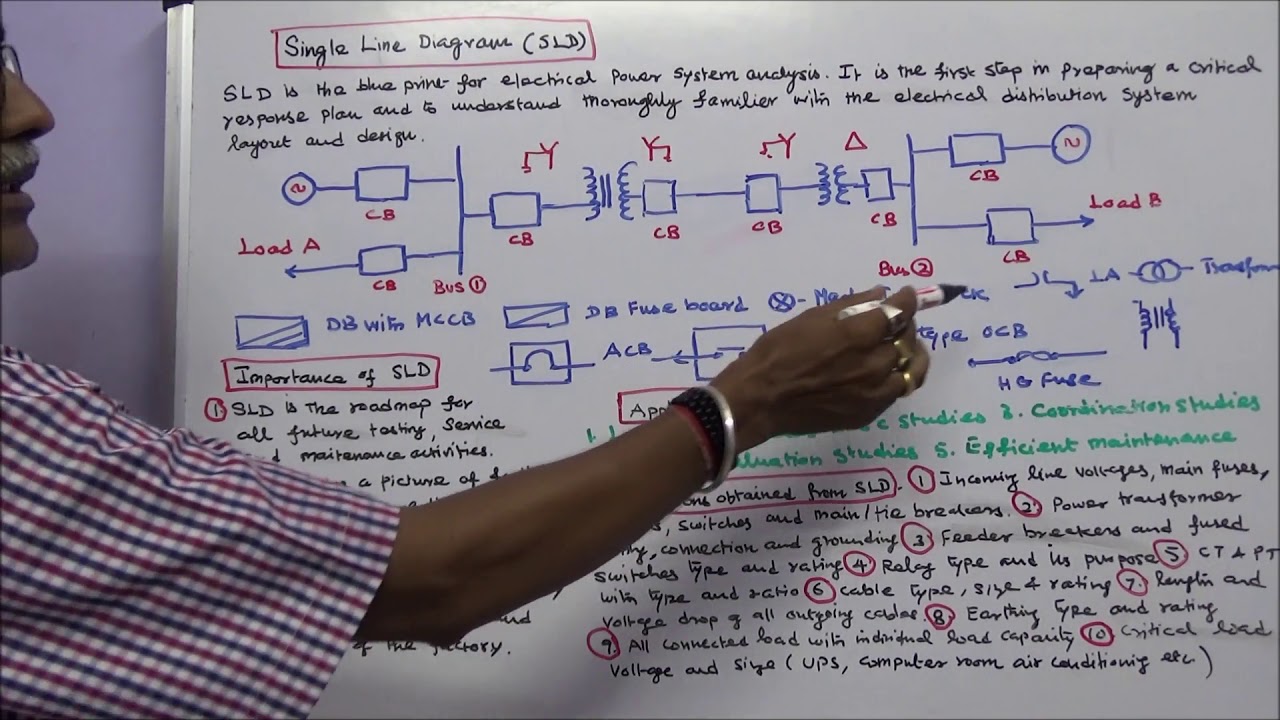 Single Line Diagram (SLD)
SLD is the blue print for electrical Power System analysis. It is the first step in preparing a critical
response plan and to understand thoroughly familier with the electrical distribution System
layout and design.
CB
CB
CB
CB
CB
CB
CB
CB
Load A
Load B
BUS ①
Bus ②
DB with MCCB
DB Fuse board
LA
Transform
ACB
type OCB
HG Fuse
Importance of SLD
① SLD is the roadmap for
all future testing, Service
maitenance activities.
a picture of
and
of the factory.
App
studies 3. Coordination Studies
studies 5. Efficient maintenance
obtained from SLD. ① Incoming line voltages, main fuses,
, switches and main/tie breakers. ② Power transformer
, connection and grounding ③ Feeder breakers and fused
switches type and rating ④ Relay type and its purpose ⑤ CT & PT
with type and ratio ⑥ cable type, size & rating ⑦ length and
voltage drop of all outgoing cables. ⑧ Earthing type and rating
⑨ All connected load with individual load capacity ⑩ Critical load
voltage and size (UPS, computer room air conditioning etc.)